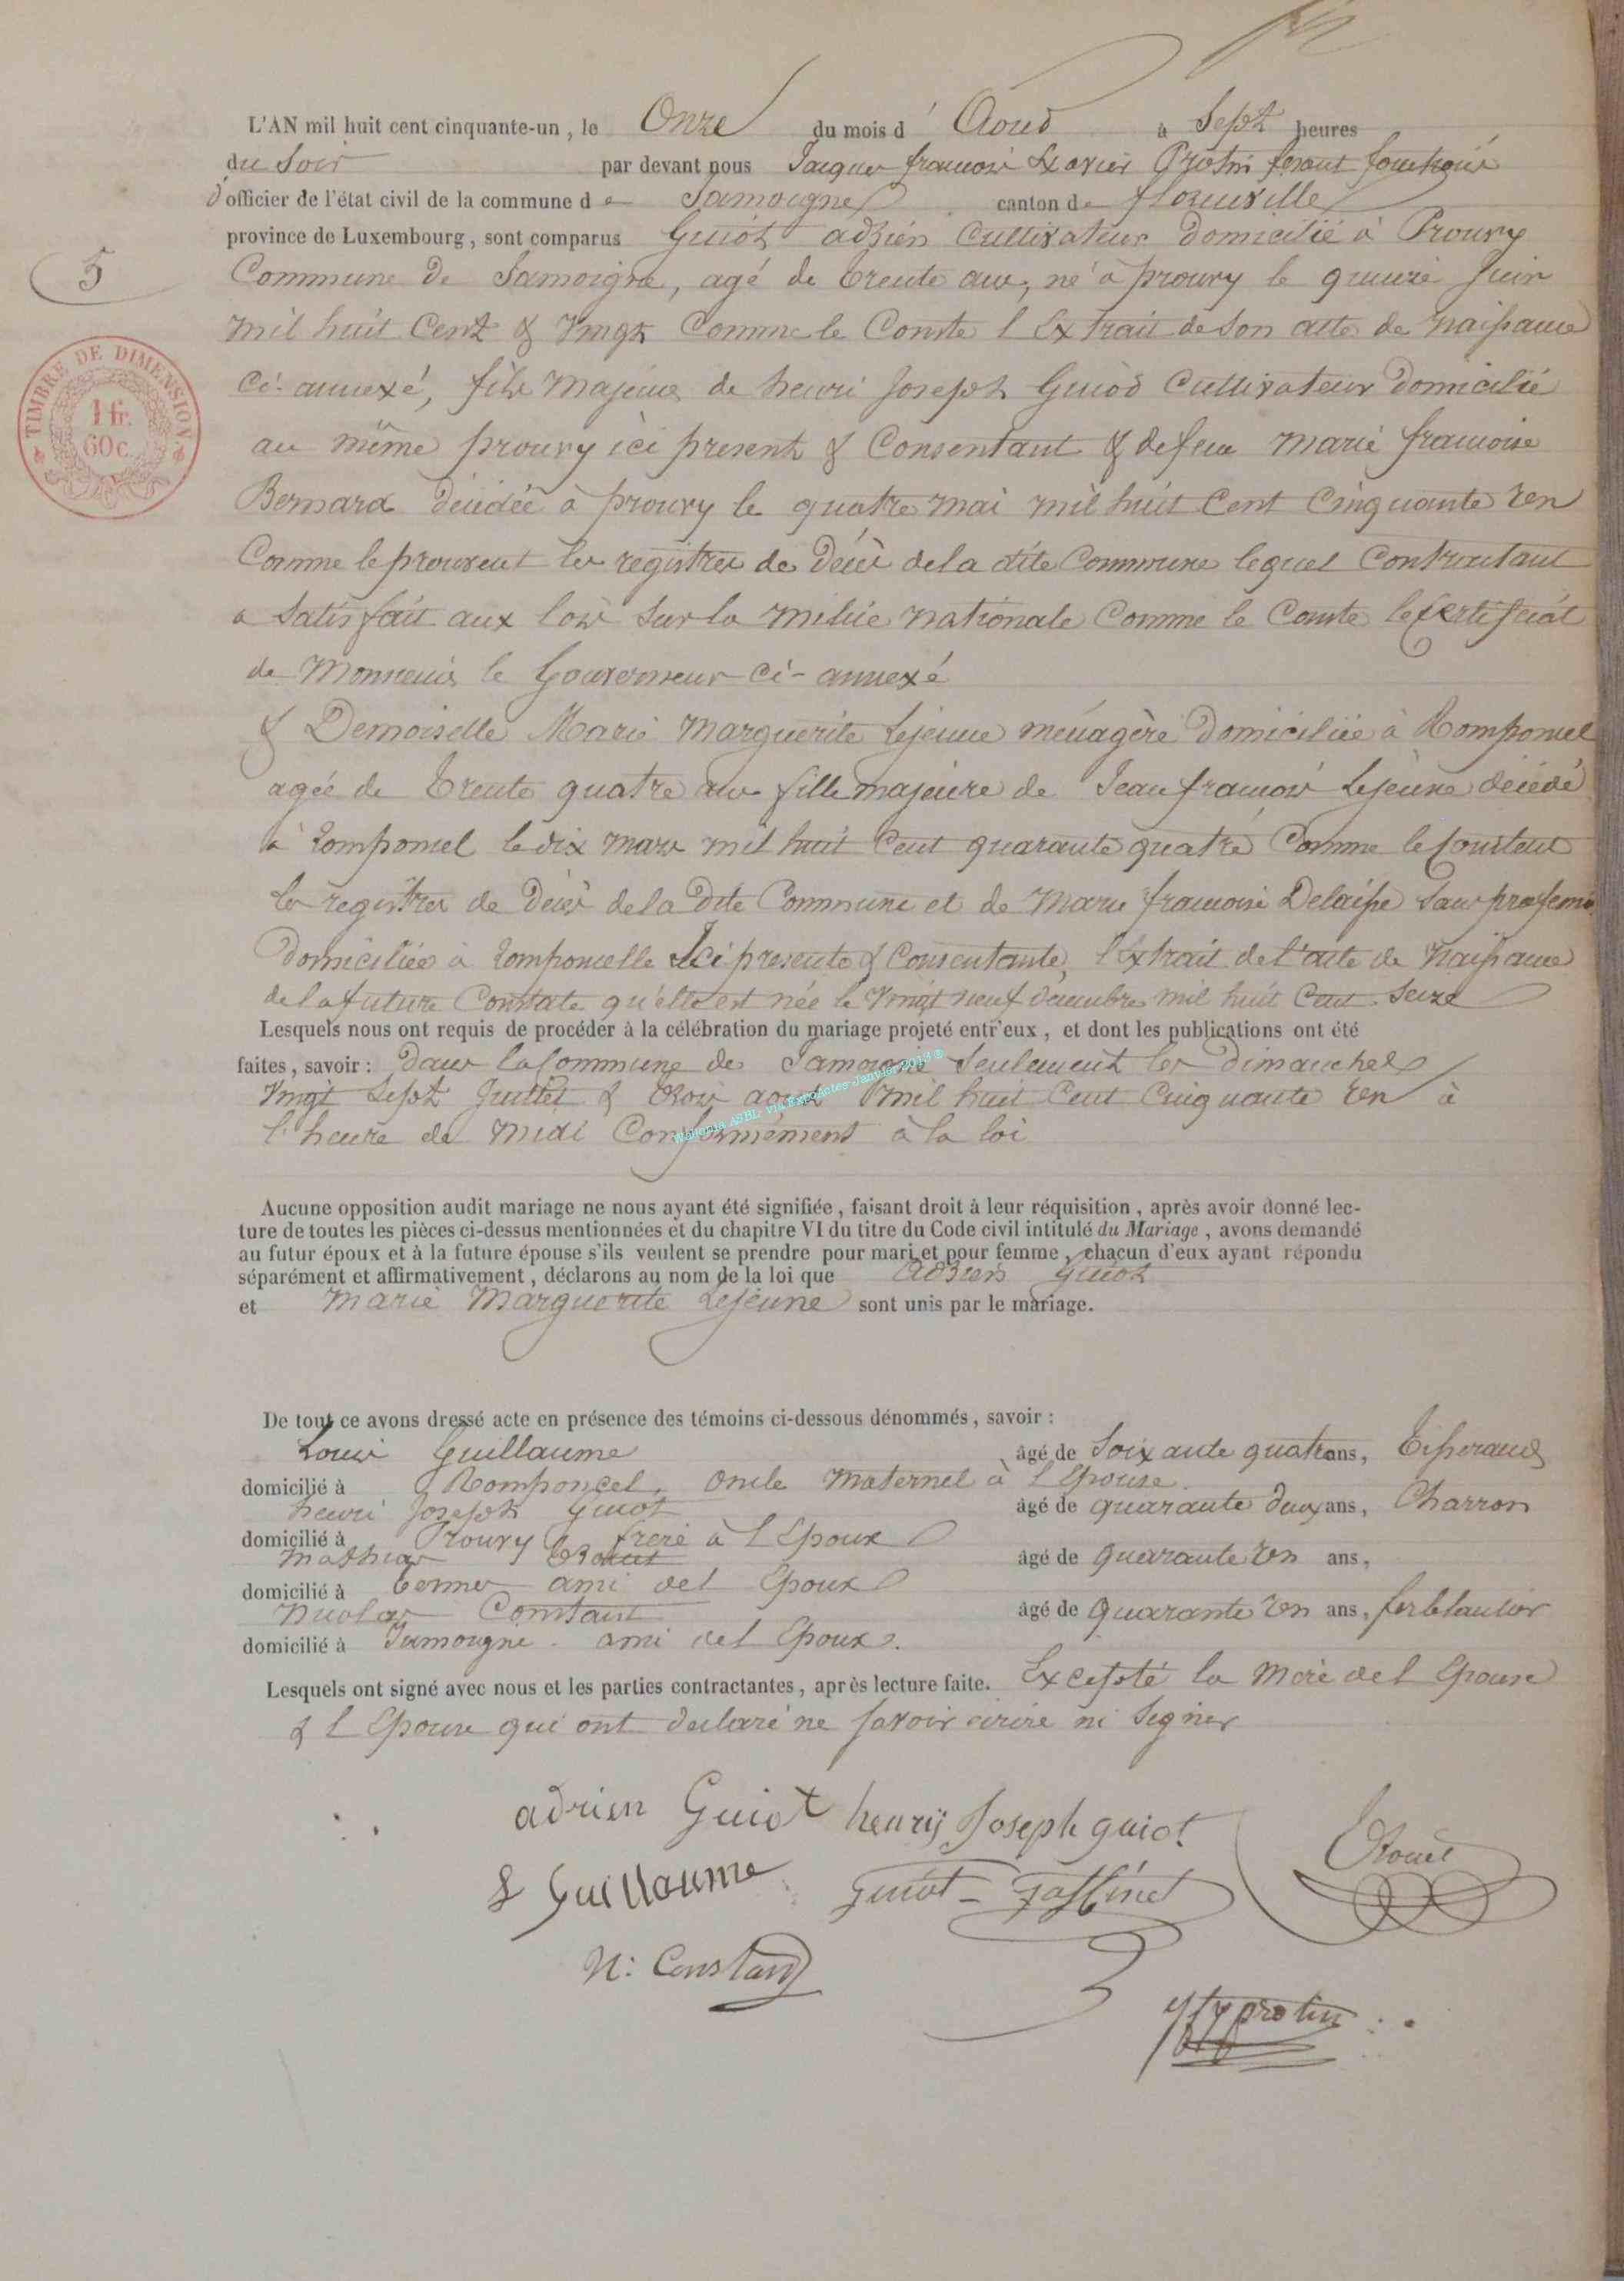 L'AN mil huit cent cinquante-un, le Onze du mois d' Aoud à Sept heures
du Soir par devant nous Jacques francois Xavier Protin fesant fonctions
d'officier de l'état civil de la commune de Jamoigne canton de florenville
province de Luxembourg, sont comparus Guiot adrien Cultivateur domicilié à Prouvy
5
Commune de Jamoigne, agé de trente ans, né à prouvy le quinze Juin
mil huit Cent & Vingt Comme le Conste l Extrait de son acte de naissance
TIMBRE DE DIMENSION
1 fr.
60 c.
Ci-annexé, fils majeur de henri Joseph Guiod Cultivateur domicilié
au même prouvy ici present & Consentant & de feue Marie francoise
Bernard décédée à prouvy le quatre mai mil huit Cent Cinquante Un
Comme le prouvent les registres de Décès de la dite Commune lequel Contractant
a Satisfait aux lois Sur la milice nationale Comme le Conste le Certificat
de Monsieur le Gouverneur Ci-annexé
& Demoiselle Marie Marguerite Lejeune ménagère domiciliée à Romponcel
agée de trente quatre ans fille majeure de Jean francois Lejeune décédé
à romponcel le dix mars mil huit Cent quarante quatre Comme le Constent
les registres de Décès de la Dite Commune et de Marie francoise Delaisse Sans profession
domiciliée à romponcelle Ici presente & Consentante, l'Extrait de l'acte de naissance
de la future Constate qu'elle est née le Vingt neuf décembre mil huit Cent Seize
Lesquels nous ont requis de procéder à la célébration du mariage projeté entr'eux, et dont les publications ont été
faites, savoir: dans la Commune de Jamoigne Seulement les dimanches
Vingt Sept Juillet & trois aout mil huit Cent Cinquante Un à
l'heure de midi Conformément à la loi
Wallonia ASBL via ExpoActes Janvier 2013 ®
Aucune opposition audit mariage ne nous ayant été signifiée, faisant droit à leur réquisition, après avoir donné lec-
ture de toutes les pièces ci-dessus mentionnées et du chapitre VI du titre du Code civil intitulé du Mariage, avons demandé
au futur époux et à la future épouse s'ils veulent se prendre pour mari et pour femme, chacun d'eux ayant répondu
séparément et affirmativement, déclarons au nom de la loi que Adrien Guiot
et Marie Marguerite Lejeune sont unis par le mariage.
De tout ce avons dressé acte en présence des témoins ci-dessous dénommés, savoir:
Louis Guillaume âgé de Soixante quatre ans, Tisserand
domicilié à Romponcel, Oncle maternel à l Epouse
henri Joseph Guiot âgé de quarante deux ans, Charron
domicilié à Prouvy frere à l Epoux
Mathias âgé de quarante Un ans,
domicilié à termes ami de l Epoux
Nicolas Constant âgé de quarante Un ans, ferblantier
domicilié à Jamoigne ami de l Epoux.
Lesquels ont signé avec nous et les parties contractantes, après lecture faite. Excepté la Mère de l Epouse
& l Epouse qui ont declaré ne savoir ecrire ni Signer
adrien Guiot henrij Joseph guiot
L Guillaume Guiot-
N: Constant
protin